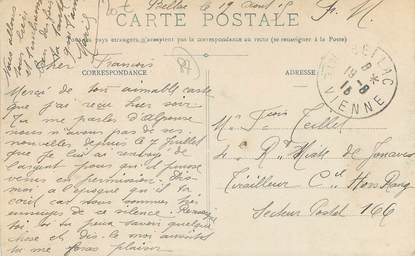 Bellac le 19 Août 15
F. M.
CARTE POSTALE
Tous les pays étrangers n'acceptent pas la correspondance au recto (se renseigner à la Poste)
CORRESPONDANCE
ADRESSE
BELLAC
19 -8
15
VIENNE
Cher François
Merci de ton aimable carte
que j'ai reçu hier soir
Tu me parles d'Alphonse
nous n'avons pas de ses
nouvelles depuis le 7 Juillet
que je lui ai envoyé de
l'argent pour qu'il puisse
venir en permission. Dis
moi à l'époque qu'il t'a
écrit car nous sommes très
ennuyés de ce silence.
toi si tu peux savoir quelque
chose et dis le moi aussitôt
tu me feras plaisir
Mr Fçois Teillet
4e Rt Mixte de
Tirailleur Cie Hors Rang
Secteur Postal 166